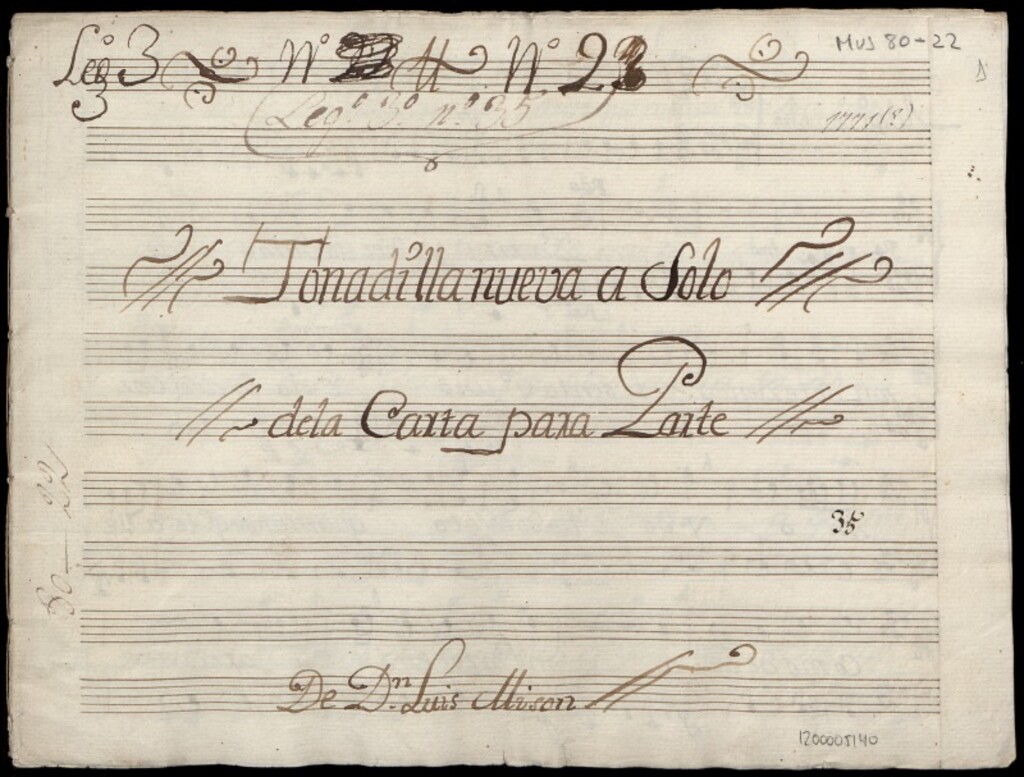 Leg.º 3 Nº Nº 23
Mus 80-22
Leg.º 3º nº 35
1771(?)
Tonadilla nueva a Solo
dela Carta para Parte
35
80-22
De D.n Luis Mison
1200005140